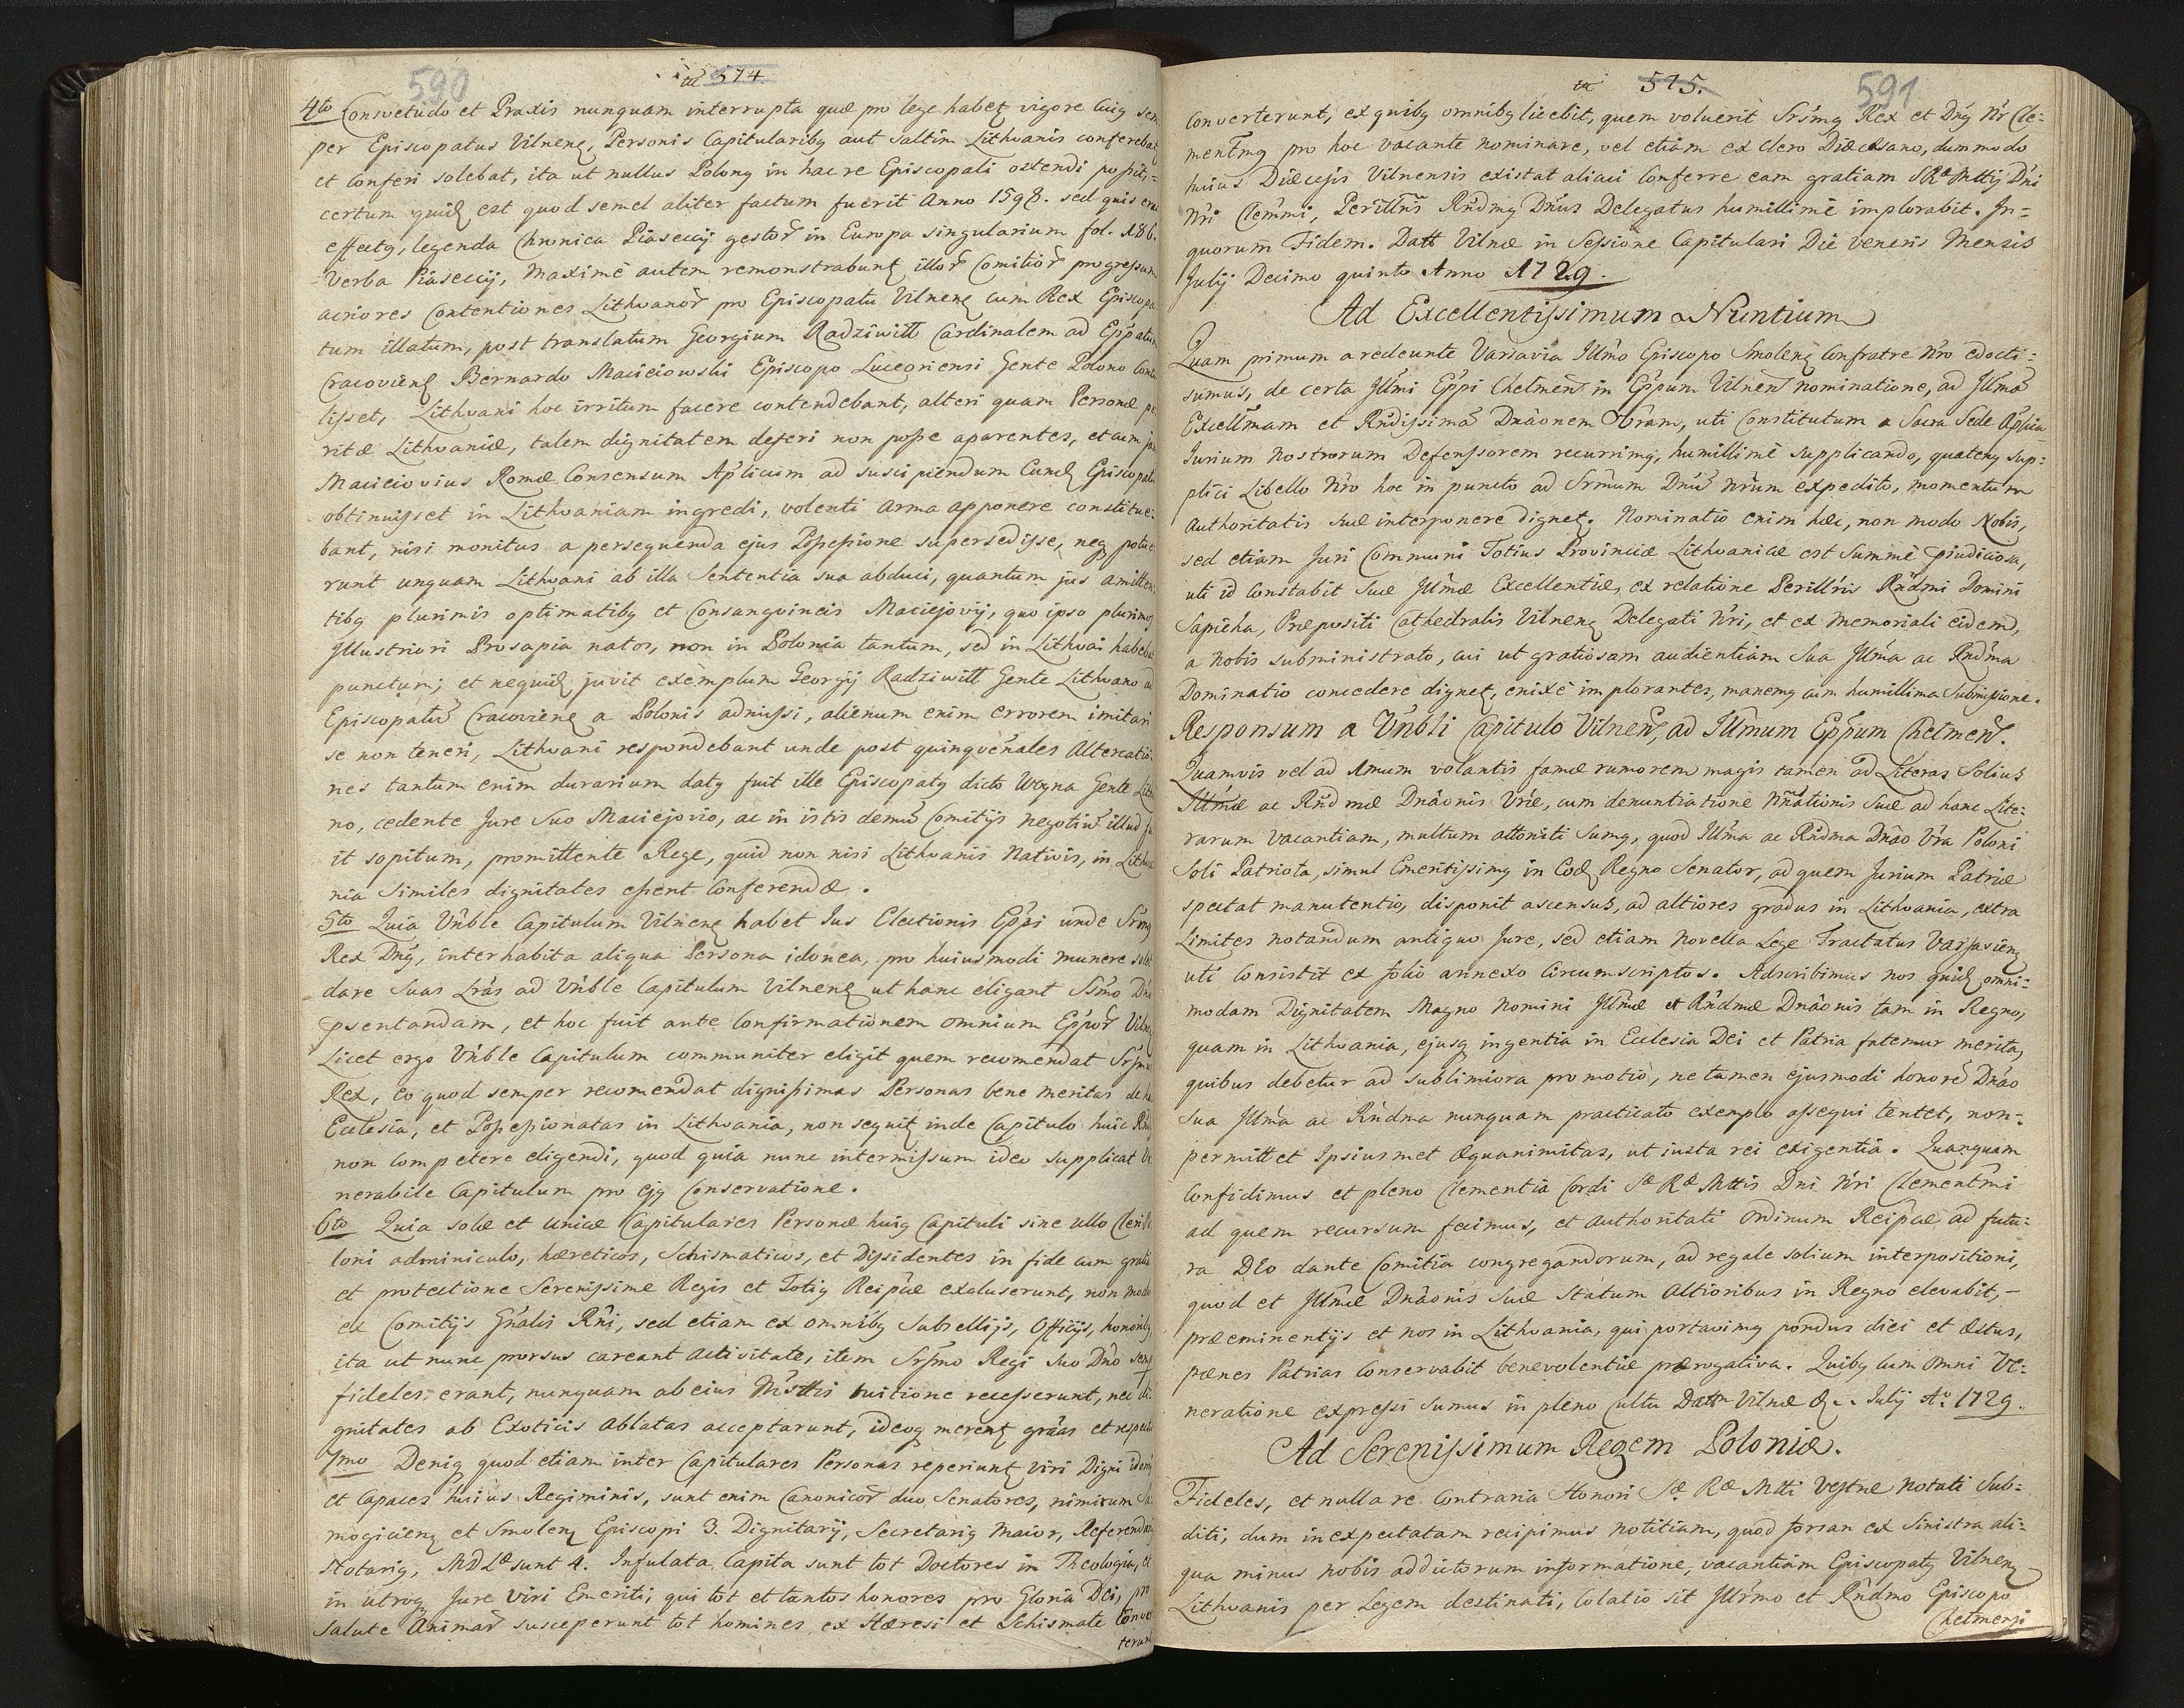 590
574
4to Consvetudo et Praxis nunquam interrupta quæ pro lege habetꝫ vigore Cuiꝗ sem
per Episcopatus Vilnenꝫ, Personis Capitularibꝗ aut saltim Lithvanis conferebat
et Conferi solebat, ita ut nullus Polonꝗ in hac re Episcopali ostendi poßit,=
certum quidꝫ est quod semel aliter factum fuerit Anno 1598. sed quis
effectꝗ, legenda Chronica Piasecij gestor̃ in Europa singularium fol. 186.
Verba Piasecij, Maximè autem remonstrabunt illor̃ Comitior̃ progreßum
acriores Contentiones Lithvanor̃ pro Episcopatu Vilnenꝫ cum Rex Episcopa
tum illatum, post translatum Georgium Radziwiłł Cardinalem ad Epp̃atum
Cracovienꝫ Bernardo Macieiowski Episcopo Luceoriensi Gente Polono
lißet, Lithvani hoc irritum facere contendebant, alteri quam Personæ
ritæ Lithvaniæ, talem dignitatem deferi non poße aparentes, et cum
Macieiovius Romæ Consensum Ap̃licum ad suscipiendum Eundꝫ Episcopatu
obtinuißet in Lithvaniam ingredi, volenti arma apponere constitue=
bant, nisi monitus a persequenda ejus Poßeßione supersedißet, neqꝫ potue
runt unquam Lithvani ab illa Sententia sua abduci, quantum jus
tibꝗ plurimis optimatibꝗ et Consangvineis Maciejovij, quo ipso plurimos
Illustriori Prosapia natos, non in Polonia tantum, sed in Lithvai
punctum; et nequidꝫ juvit exemplum Georgij Radziwiłł Gente Lithvano
Episcopatũ Cracovienꝫ a Polonis admißi, alienum enim errorem imitari
se non teneri, Lithvani respondebant unde post quinqveñales Altercatio
nes tantum enim durarium datꝗ fuit ille Episcopatꝗ dicto Woyna Gente
no, cedente Jure Suo Maciejovio, ac in istis demũ Comitijs negotiũ illud
it sopitum, promittente Rege, quid non nisi Lithvanis Nativis, in Lithva
nia Similes dignitates eßent Conferendæ.
5to Quia Vñble Capitulum Vilnenꝫ habet Jus Electionis Epp̃i unde
Rex Dñꝗ, interhabita aliqua Persona idonea, pro huiusmodi munere
dare Suas Lr̃as ad Vñble Capitulum Vilnenꝫ ut hanc eligant Sſmo
p̃sentandam, et hoc fuit ante Confirmationem omnium Epp̃or̃
Licet ergo Vñble Capitulum communiter eligit quem recomendat
Rex, eo quod semper recomendat dignißimas Personas bene meritas de
Ecclesia, et Poßeßionatas in Lithvania, non sequitꝫ inde Capitulo huic
non competere eligendi, quod quia nunc intermißum ideo supplicat
nerabile Capitulum pro ejꝗ Conservatione.
6to Quia solæ et unicæ Capitulares Personæ huiꝗ Capituli sine ullo Cleri
loni adminiculo, hæreticos, Schismaticos, et Dißidentes in fide cum gratia
et protectione Serenißime Regis et Totiꝗ Reip̃cæ excluserunt, non modo
ex Comitijs Gñalis Rñi, sed etiam ex omnibꝗ Subsellijs, Officijs,
ita ut nunc prorsus careant activitate, item Srſmo Regi Suo Dño
fideles erant, nunquam ab eius Mr̃ttis tuitione receßerunt, nec di
gnitates ab Exoticis ablatas acceptarunt, ideoqꝫ merentꝫ grãas et
7mo Deniqꝫ quod etiam inter Capitulares Personas reperiuntꝫ viri Digni
et Capaces huius Regiminis, sunt enim Canonicor̃ duo Senatores, nimirum Sa
mogicienꝫ et Smolenꝫ Episcopi 3. Dignitarij, Secretariꝗ Maior,
Notariꝗ, MDLæ sunt 4. Infulata Capita sunt tot Doctores in Theologia, et
in utroqꝫ Jure viri Emeriti, qui tot et tantos honores pro Gloria Dei, pro
salute Animar̃ susceperunt tot homines ex Hæresi et Schismate Conver
terunt
575.
591
converterunt, ex quibꝗ omnibꝗ licebit, quem voluerit Srſmꝗ Rex et Dñꝗ Nr̃ Cle=
mentmꝗ pro hoc vacante nominare, vel etiam ex Clero Diæcesano, dummodo
huius Diæcesis Vilnensis existat alicui Conferre eam gratiam SRæ Mttij Dñi
Nr̃i Clem̃mi, Perillr̃is Rñdmꝗ Dñus Delegatus humillimè implorabit. In=
quorum Fidem. Datt Vilnæ in Seßione Capitulari Die veneris Mensis
Julij Decimo quinto Anno 1729.
Ad Excellentißimum Nuntium
Quam primum a redeunte Varsavia Illm̃o Episcopo Smolenꝫ Confratre Nr̃o edocti=
sumus, de certa Illm̃i Epp̃i Chelmenꝫ in Epp̃um Vilnenꝫ nominatione, ad Illm̃ã
Excellm̃am et Rñdißimã Dnãonem Vr̃am, uti Constitutum a Sacra Sede Ap̃lica
Jurium Nostrorum Defenßorem recurrimꝗ, humillimè supplicando, quatenꝗ sup=
plici Libello Nr̃o hoc in puncto ad Srm̃um Dñũ Nr̃um expedito, momentum
authoritatis suæ interponere dignetꝫ. Nominatio enim hæc, non modo Nobis,
sed etiam Juri Communi Totius Provinciæ Lithvaniæ est summè p̃iudiciosa,
uti id Constabit Suæ Illm̃æ Excellentiæ, ex relatione Perillr̃is Rñdmi Domini
Sapieha, Præpositi Cathedralis Vilnenꝫ Delegati Nr̃i, et ex Memoriali eidem,
a Nobis subministrato, cui ut gratiosam audientiam Sua Illm̃a ac Rñdma
Dominatio concedere dignetꝫ, enixè implorantes, manemꝗ cum humillima Submißione.
Responsum a Vñbli Capitulo Vilnenꝫ, ad Illm̃um Epp̃um Chelmenꝫ.
Quamvis vel ad 1mum volantis famæ rumorem magis tamen ad Literas Solius
Illm̃æ ac Rñdmæ Dnãonis Vr̃æ, cum denuntiatione Nñationis Suæ ad hanc Lite=
rarum vacantiam, multum attoniti sumꝗ, quod Illm̃a ac Rñdma Dnão Vr̃a Poloni
Soli Patriota, simul Emeritißimꝗ in Eodꝫ Regno Senator, ad quem Jurium Patriæ
spectat manutentio, disponit ascensus, ad altiores gradus in Lithvania, extra
Limites notandum antiquo Jure, sed etiam Novella Lege Tractatus Varsavienꝫ
uti Consistit ex folio annexo Circumscriptos. Adscribimus nos quidꝫ omni=
modam Dignitatem Magno Nomini Illm̃æ et Rñdmæ Dnãonis tam in Regno,
quam in Lithvania, ejusꝗ ingentia in Ecclesia Dei et Patria fatemur merita,
quibus debetur ad sublimiora promotio, ne tamen ejusmodi honorẽ Dnão
Sua Illm̃a ac Rñdma nunquam practicato exemplo aßequi tentet, non=
permittet Ipsiusmet æquanimitas, ut iusta rei exigentia. Quanquam
Confidimus et pleno Clementia Cordi Sæ Ræ Mttis Dni Nr̃i Clementm̃i
ad quem recursum fecimus, et authoritati Ordinum Reip̃cæ ad futu=
ra DEO dante Comitia congregandorum, ad regale solium interpositioni,
quod et Illm̃æ Dnãonis Suæ Statum Altioribus in Regno elevabit,-
præeminentijs et nos in Lithvania, qui portavimꝗ pondus diei et æstus,
pænes Patrias Conservabit benevolentiæ prærogativa. Quibꝗ cum omni Ve=
neratione expreßi sumus in pleno cultu Dattm Vilnæ &.. Julij Ao. 1729.
Ad Serenißimum Regem Poloniæ.
Fideles, et nulla re Contraria Honori Sæ. Ræ Mtti Vestræ notati Sub=
diti, dum inexpectatam recipimus notitiam, quod forsan ex Sinistra ali=
qua minus nobis addictorum informatione, vacantiam Episcopatꝗ Vilnenꝫ
Lithvanis per Legem destinati, Colatio sit Illr̃mo et Rñdmo Episcopo
Chelmensi